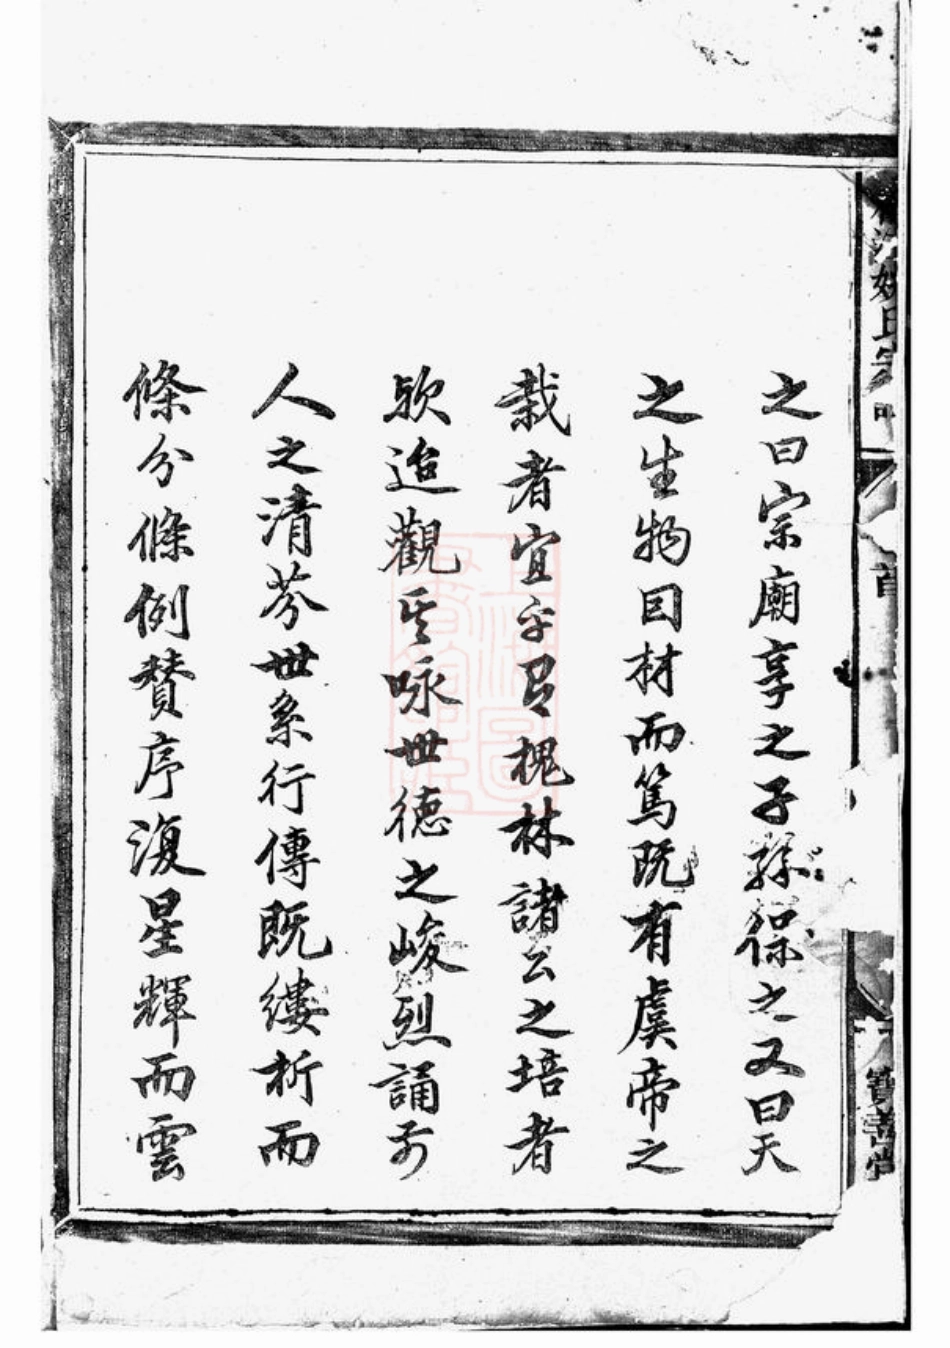 姚氏宗
首
寶善堂
之曰宗廟享之子孫保之又曰天
之生物囙材而篤既有虞帝之
栽者宜乎有槐林諸公之培者
欤迨觀其咏世德之峻烈誦前
人之清芬世系行傳既縷析而
條分條例贊序復星輝而雲